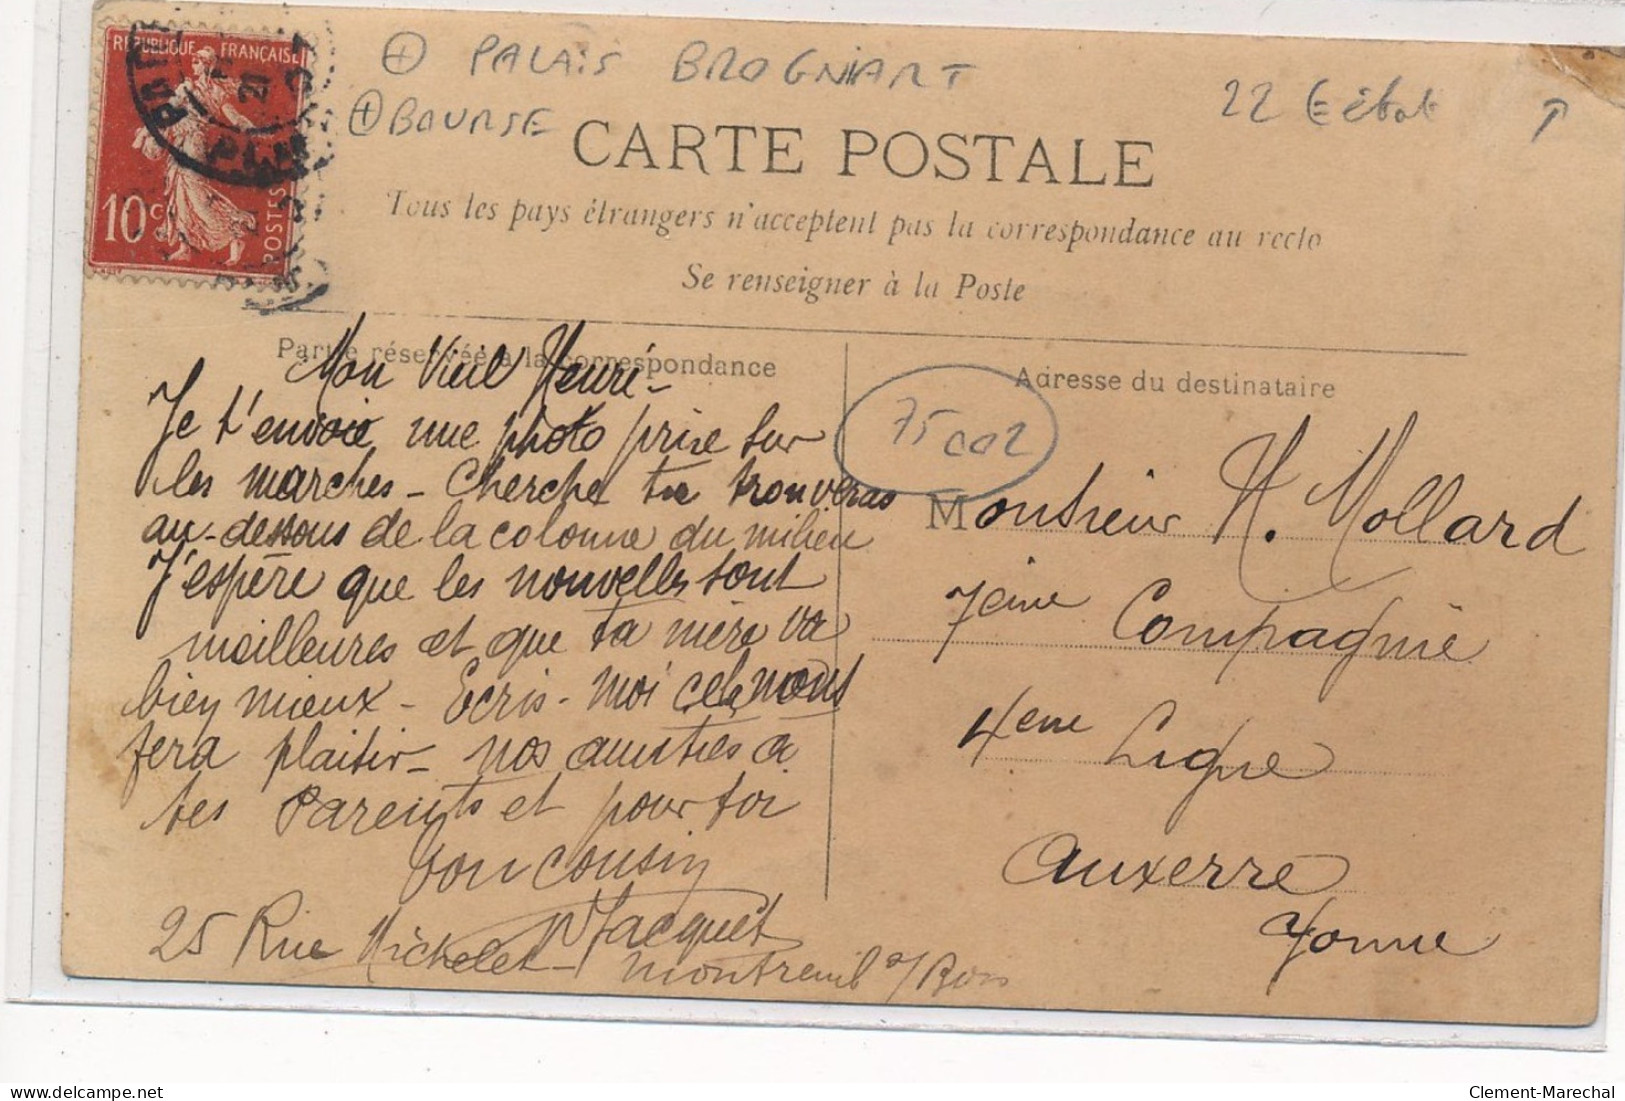 RÉPUBLIQUE FRANÇAISE
10 c
POSTES
PALAIS BROGNIART
BOURSE
22 € état
CARTE POSTALE
Tous les pays étrangers n'acceptent pas la correspondance au recto
Se renseigner à la Poste
Partie réservée à la correspondance
Mon Vieil Henri -
Je t'envoie une photo prise sur
les marches - Cherche tu trouveras
au-dessous de la colonne du milieu
J'espère que les nouvelles sont
meilleures et que ta mère va
bien mieux - Ecris-moi cela nous
fera plaisir - nos amitiés à
tes Parents et pour toi
Ton cousin
Jacquet
25 Rue Michelet - Montreuil s/Bois
Adresse du destinataire
75002
Monsieur H. Mollard
7eime Compagnie
4eme Ligne
Auxerre
Yonne
delcampe.net
Clement-Marechal